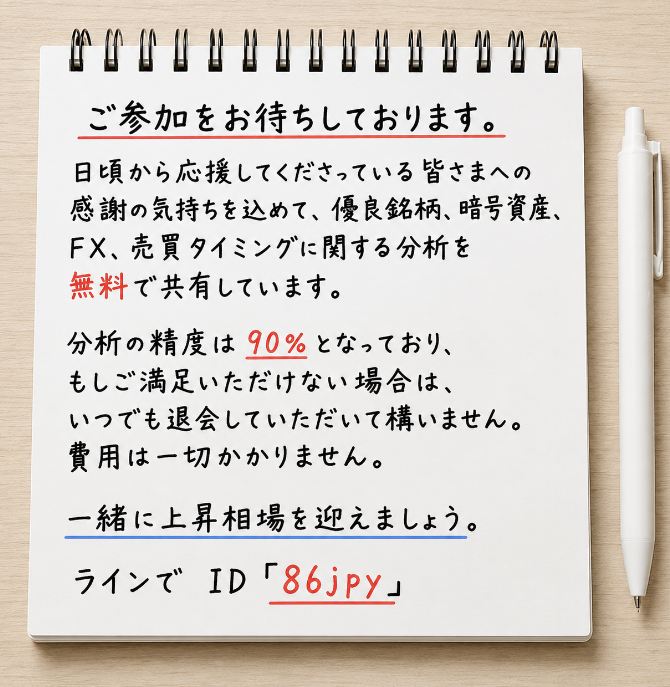 ご参加をお待ちしております。
日頃から応援してくださっている皆さまへの
感謝の気持ちを込めて、優良銘柄、暗号資産、
FX、売買タイミングに関する分析を
無料で共有しています。
分析の精度は90%となっており、
もしご満足いただけない場合は、
いつでも退会していただいて構いません。
費用は一切かかりません。
一緒に上昇相場を迎えましょう。
ラインで ID「86jpy」